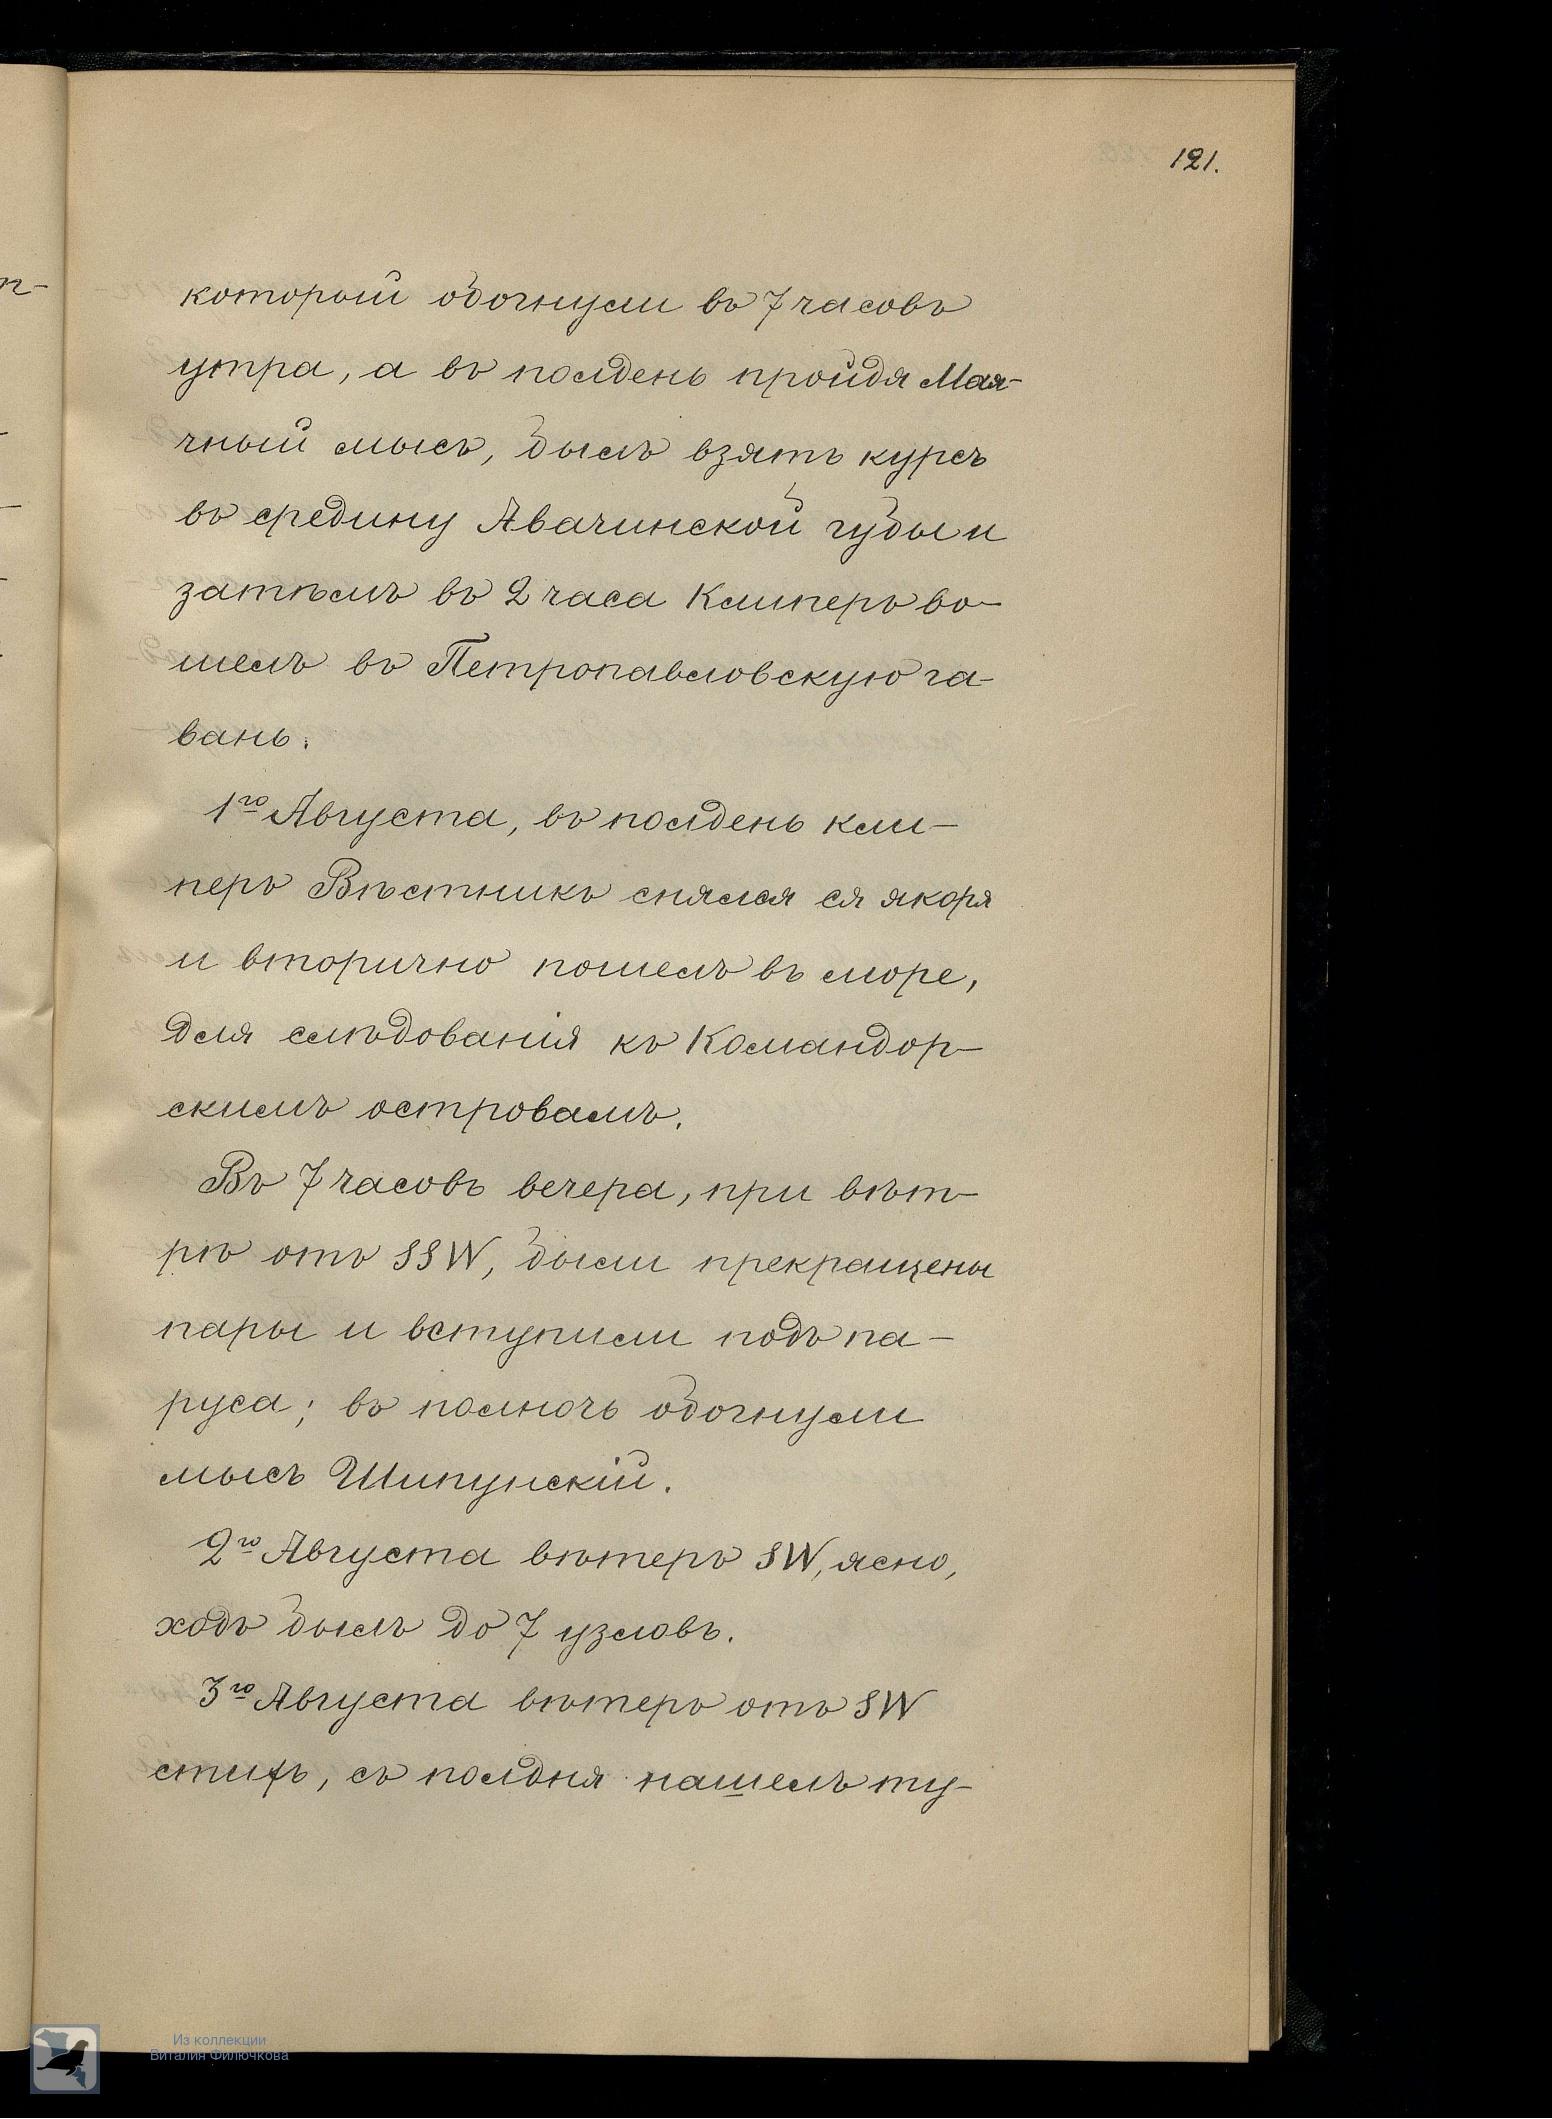 121.
который обогнули въ 7 часовъ
утра, а въ полдень пройдя Мая-
чный мысъ, былъ взятъ курсъ
въ средину Авачинской губы и
затѣмъ въ 2 часа Клиперъ во-
шелъ въ Петропавловскую га-
вань.
1го Августа, въ полдень кли-
перъ Вѣстникъ снялся ся якоря
и вторично пошелъ въ море,
для слѣдованія къ Командор-
скимъ островамъ.
Въ 7 часовъ вечера, при вѣт-
рѣ отъ SSW, были прекращены
пары и вступили подъ па-
руса; въ полночь обогнули
мысъ Шипунскій.
2го Августа вѣтеръ SW, ясно,
ходъ былъ до 7 узловъ.
3го Августа вѣтеръ отъ SW
стихъ, съ полдня нашелъ ту-
Из коллекции
Виталия Филючкова